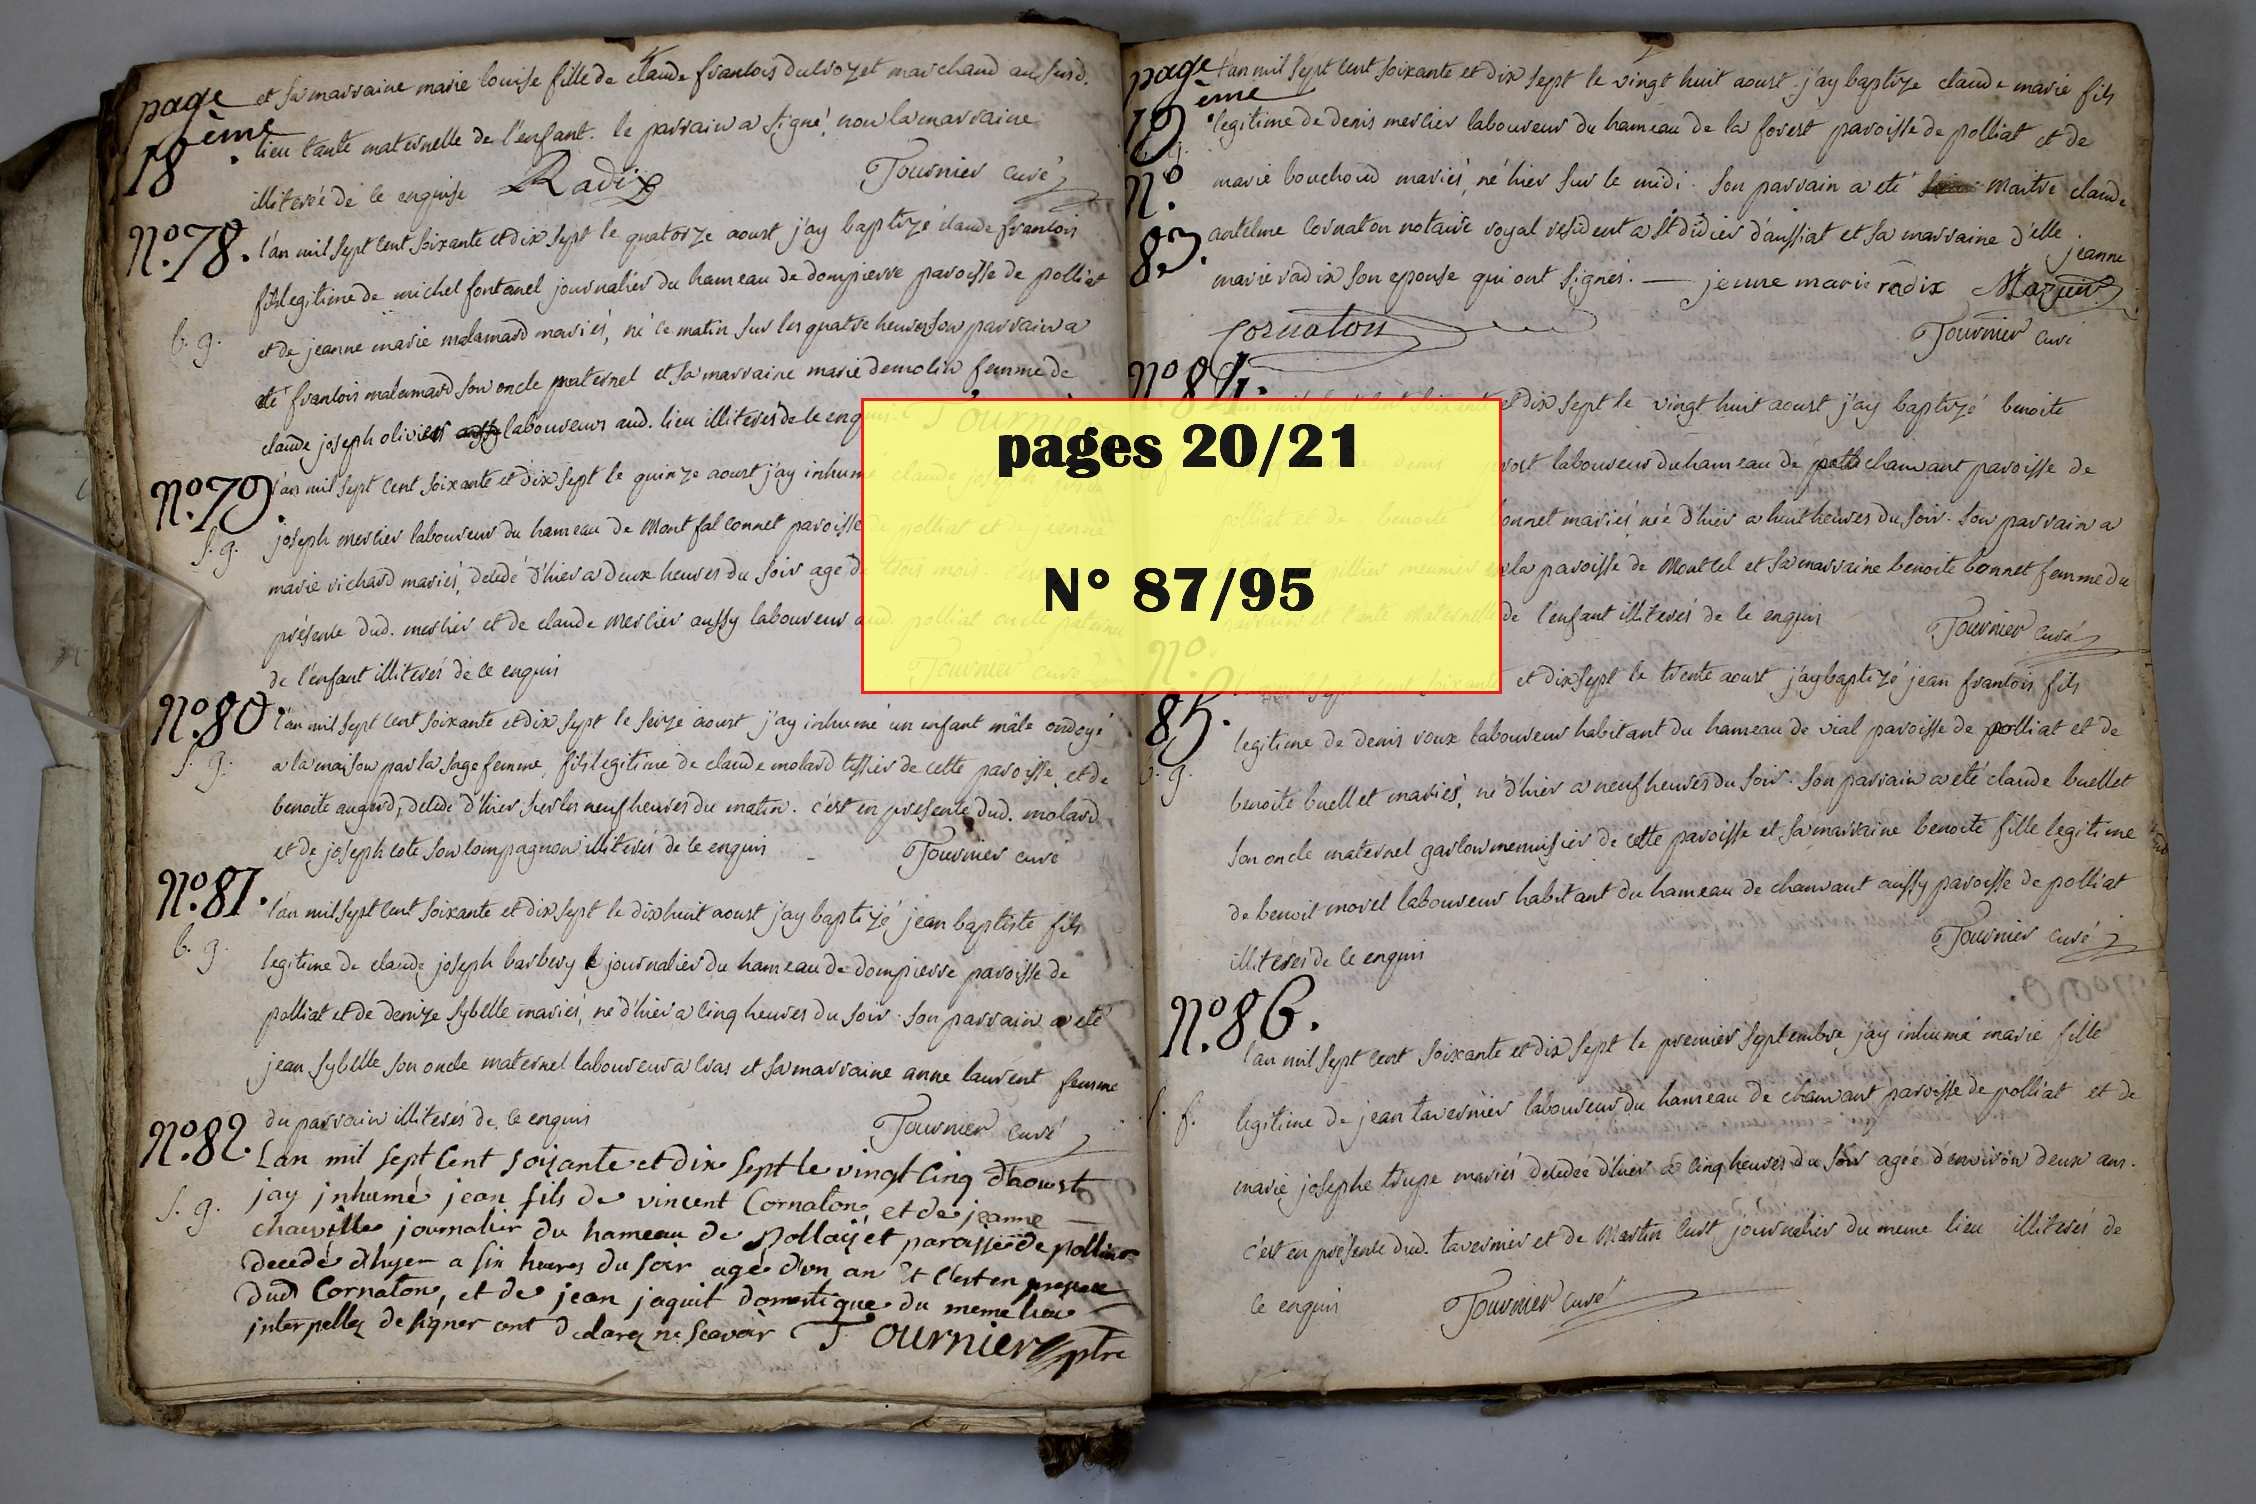 page 18ème
et sa marraine marie louise fille de claude francois marchand
lieu tante maternelle de l'enfant. le parrain a signé, non la marraine
illiterée de ce enquise Radix Tournier curé
N°.78. l'an mil sept cent soixante et dix sept le quatorze aoust j'ay baptizé claude francois
fils legitime de michel fontanel journalier du hameau de dompierre paroisse de polliat
b. g. et de jeanne marie malamard mariés, né ce matin sur les quatre heures son parrain a
eté francois malamard son oncle maternel et sa marraine marie demolin femme de
claude joseph olivier laboureurs aud. lieu illiterés de ce enquis Tournier
N°.79. l'an mil sept cent soixante et dix sept le quinze aoust j'ay inhumé claude
s. g. joseph merlier laboureur du hameau de Montfalconnet paroisse de polliat et de jeanne
marie richard mariés, decedé d'hier a deux heures du soir agé de trois mois
présence dud. merlier et de claude merlier aussy laboureur aud. polliat oncle paternel
de l'enfant illiterés de ce enquis Tournier curé
N°.80. l'an mil sept cent soixante et dix sept le seize aoust j'ay inhumé un enfant mâle ondoyé
s. g. a la maison par la sage femme, fils legitime de claude molard tissier de cette paroisse, et de
benoite augerd, decedé d'hier sur les neuf heures du matin. c'est en presence dud. molard
et de joseph cote son compagnon illiterés de ce enquis Tournier curé
N°.81. l'an mil sept cent soixante et dix sept le dixhuit aoust j'ay baptizé jean baptiste fils
b. g. legitime de claude joseph barbery journalier du hameau de dompierre paroisse de
polliat et de denize sybelle mariés, né d'hier a cinq heures du soir son parrain a eté
jean sybelle son oncle maternel laboureur a cras et sa marraine anne laurent femme
du parrain illiterés de ce enquis Tournier curé
N°.82. Lan mil sept Cent soixante et dix sept le vingt Cinq d'aoust
s. g. jay jnhumé jean fils de vincent Cornaton et de jeanne
journalier du hameau de Pollaÿet paroisse de polliat
decedé dhyer a six heures du soir agé d'un an Et C'est en presence
dud Cornaton, et de jean jaquit domestique du meme lieu
jnterpellez de signer ont declarez ne scavoir Tournier ptre
page 19ème
l'an mil sept cent soixante et dix sept le vingt huit aoust j'ay baptize claude marie fils
legitime de denis merlier laboureur du hameau de la forest paroisse de polliat et de
N° 83. marie bouchoud mariés, né hier sur le midi. son parrain a eté maitre claude
antelme Cornaton notaire royal resident a St didier d'aussiat et sa marraine d'elle jeanne
marie radix son epouse qui ont signés. — jeanne marie radix
Cornaton Tournier curé
N° 84.
et dix sept le vingt huit aoust j'ay baptizé benoite
laboureur du hameau de chanvant paroisse de
polliat et de benoite bonnet mariés, née d'hier a huit heures du soir. son parrain a
meunier la paroisse de Montcel et sa marraine benoite bonnet femme du
parrain et tante maternelle de l'enfant illiterés de ce enquis Tournier curé
N° 85. soixante et dix sept le trente aoust j'ay baptizé jean francois fils
legitime de denis roux laboureur habitant du hameau de vial paroisse de polliat et de
b. g. benoite buellet mariés, né d'hier a neuf heures du soir. son parrain a eté claude buellet
son oncle maternel garcon menuisier de cette paroisse et sa marraine benoite fille legitime
de benoit morel laboureur habitant du hameau de chanvant aussy paroisse de polliat
illiterés de ce enquis Tournier curé
N° 86.
l'an mil sept cent soixante et dix sept le premier septembre j'ay inhumé marie fille
s. f. legitime de jean tavernier laboureur du hameau de chanvant paroisse de polliat et de
marie josephe mariés decedée d'hier a cinq heures du soir agée d'environ deux ans.
c'est en présence dud. tavernier et de Martin journalier du meme lieu illiterés de
ce enquis Tournier curé
pages 20/21
N° 87/95